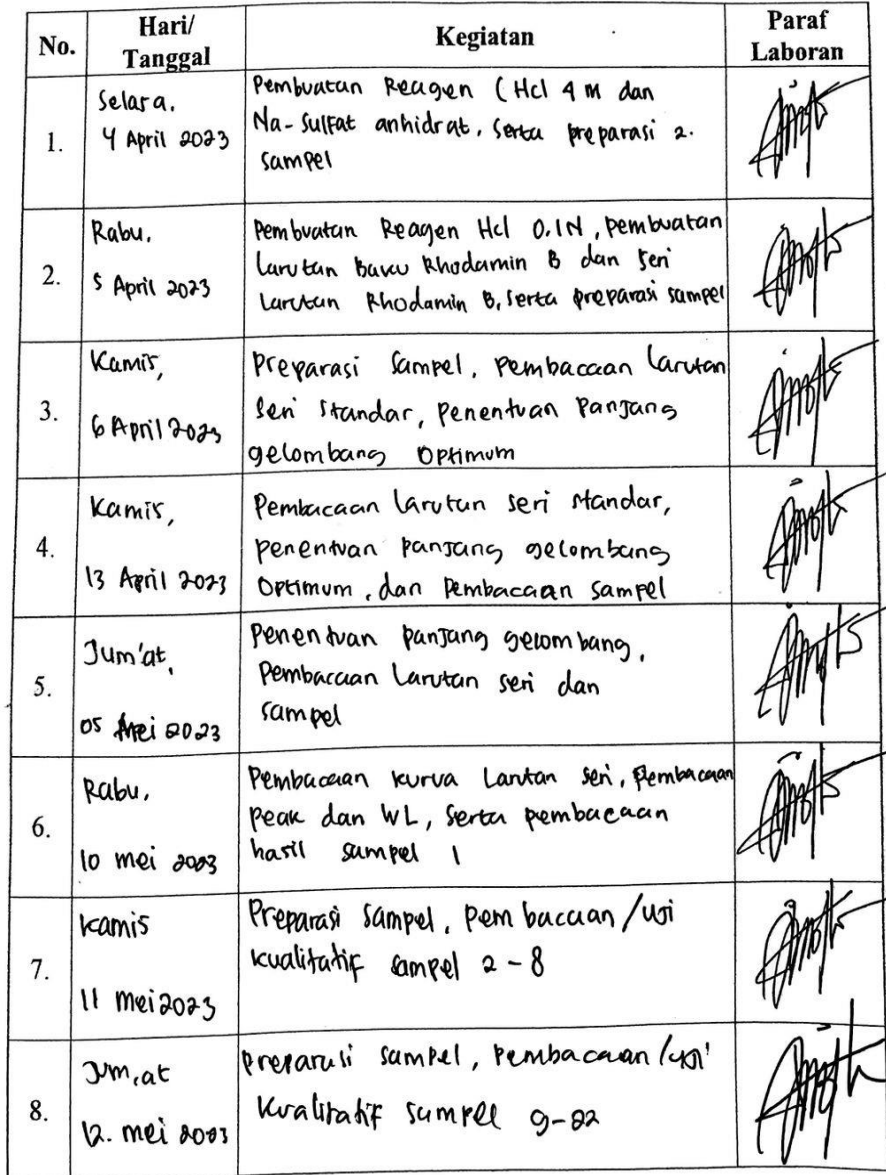 No.
Hari/
Tanggal
Kegiatan
Paraf
Laboran
1.
Selara,
4 April 2023
Pembuatan Reagen (Hcl 4 M dan
Na-Sulfat anhidrat, serta preparasi 2.
sampel
2.
Rabu,
5 April 2023
Pembuatan Reagen Hcl 0.1N, pembuatan
larutan Baku Rhodamin B dan seri
larutan Rhodamin B, serta preparasi sampel
3.
Kamis,
6 April 2023
Preparasi Sampel, Pembacaan larutan
seri standar, penentuan panjang
gelombang optimum
4.
Kamis,
13 April 2023
Pembacaan larutan seri standar,
penentuan panjang gelombang
optimum, dan pembacaan sampel
5.
Jum'at,
05 Mei 2023
Penentuan panjang gelombang,
Pembacaan larutan seri dan
sampel
6.
Rabu,
10 mei 2023
Pembacaan kurva Larutan seri, Pembacaan
peak dan WL, serta pembacaan
hasil sampel 1
7.
Kamis
11 mei 2023
Preparasi sampel, pembacaan/uji
kualitatif sampel 2-8
8.
Jum,at
12. mei 2023
preparasi sampel, pembacaan/uji
Kualitatif sampel 9-22